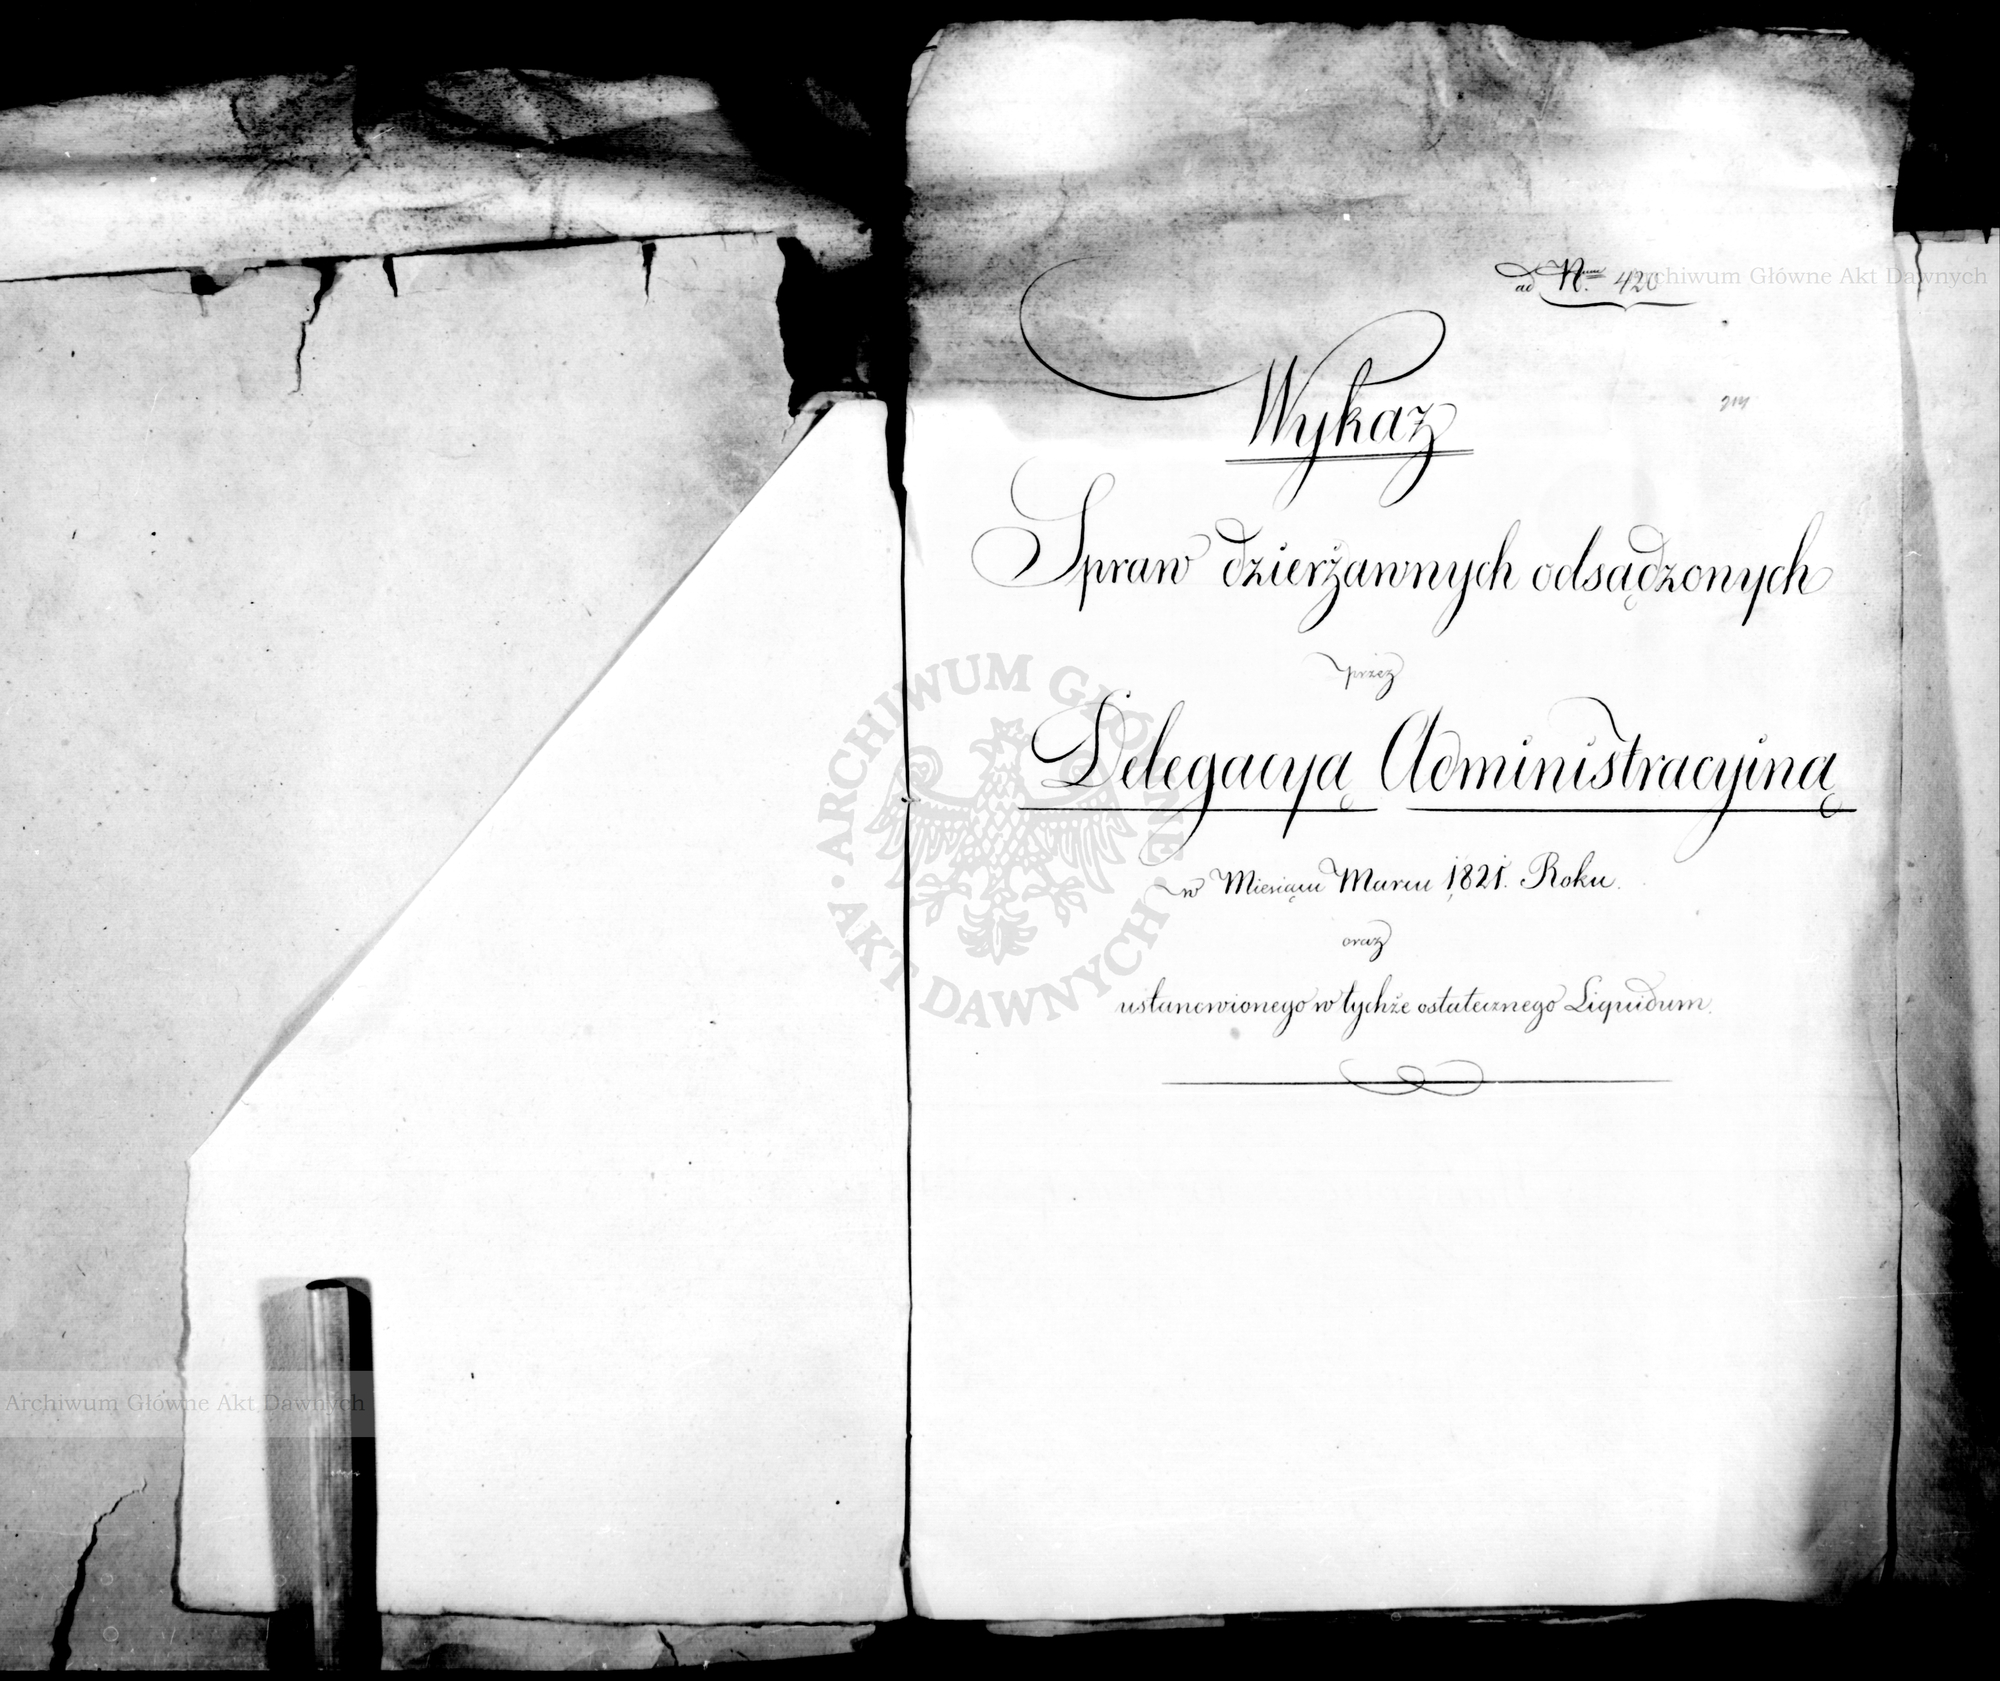 ad N.um 420
Wykaz
Spraw dzierżawnych odsądzonych
przez
Delegacyą Administracyiną
w Miesiącu Marcu 1821. Roku.
oraz
ustanowionego w tychże ostatecznego Liquidum.
Archiwum Główne Akt Dawnych
ARCHIWUM GŁÓWNE AKT DAWNYCH
Archiwum Główne Akt Dawnych